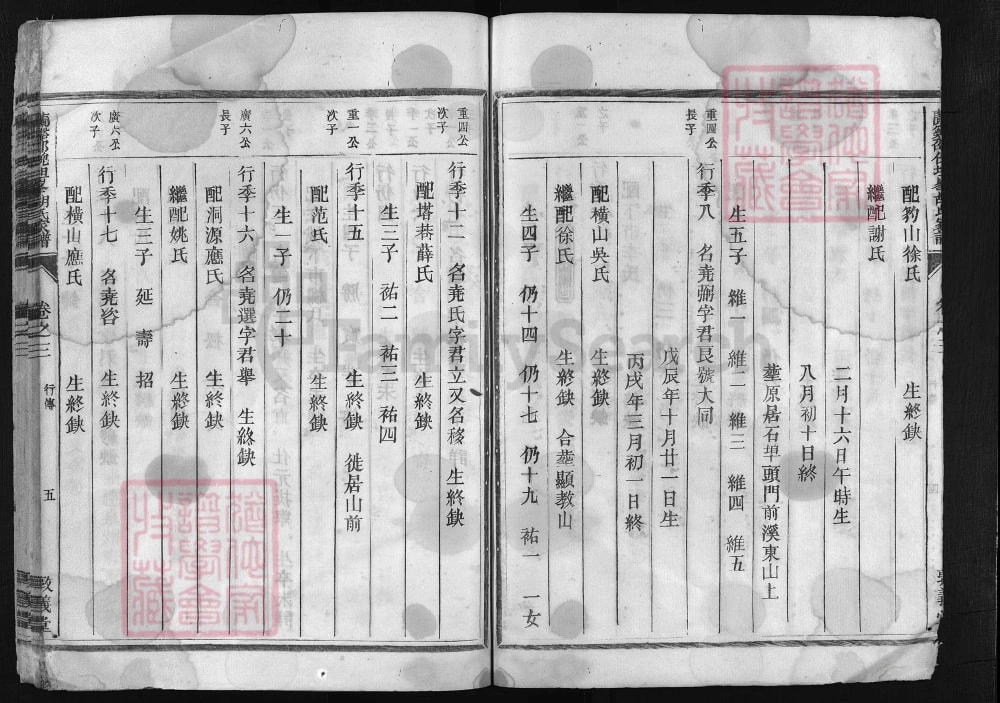 配豹山徐氏 生終缺
繼配謝氏
二月十六日午時生
八月初十日終
塟原居石埠頭門前溪東山上
生五子 維一 維二 維三 維四 維五
重四公長子
行季八 名堯弼字君艮號大同
戊辰年十月廿一日生
丙戌年三月初一日終
配橫山吳氏 生終缺
繼配徐氏 生終缺 合塟顯教山
生四子 仍十四 仍十七 仍十九 祐一 一女
重四公次子
行季十二 名堯氏字君立又名移 生終缺
配塔巷薛氏 生終缺
生三子 祐二 祐三 祐四
重一公次子
行季十五 生終缺 徙居山前
配范氏 生終缺
生一子 仍二十
廣六公長子
行季十六 名堯選字君舉 生終缺
配洞源應氏 生終缺
繼配姚氏 生終缺
生三子 延 壽 招
廣六公次子
行季十七 名堯咨 生終缺
配橫山應氏 生終缺
卷之三 行傳 五 敦義堂
FamilySearch